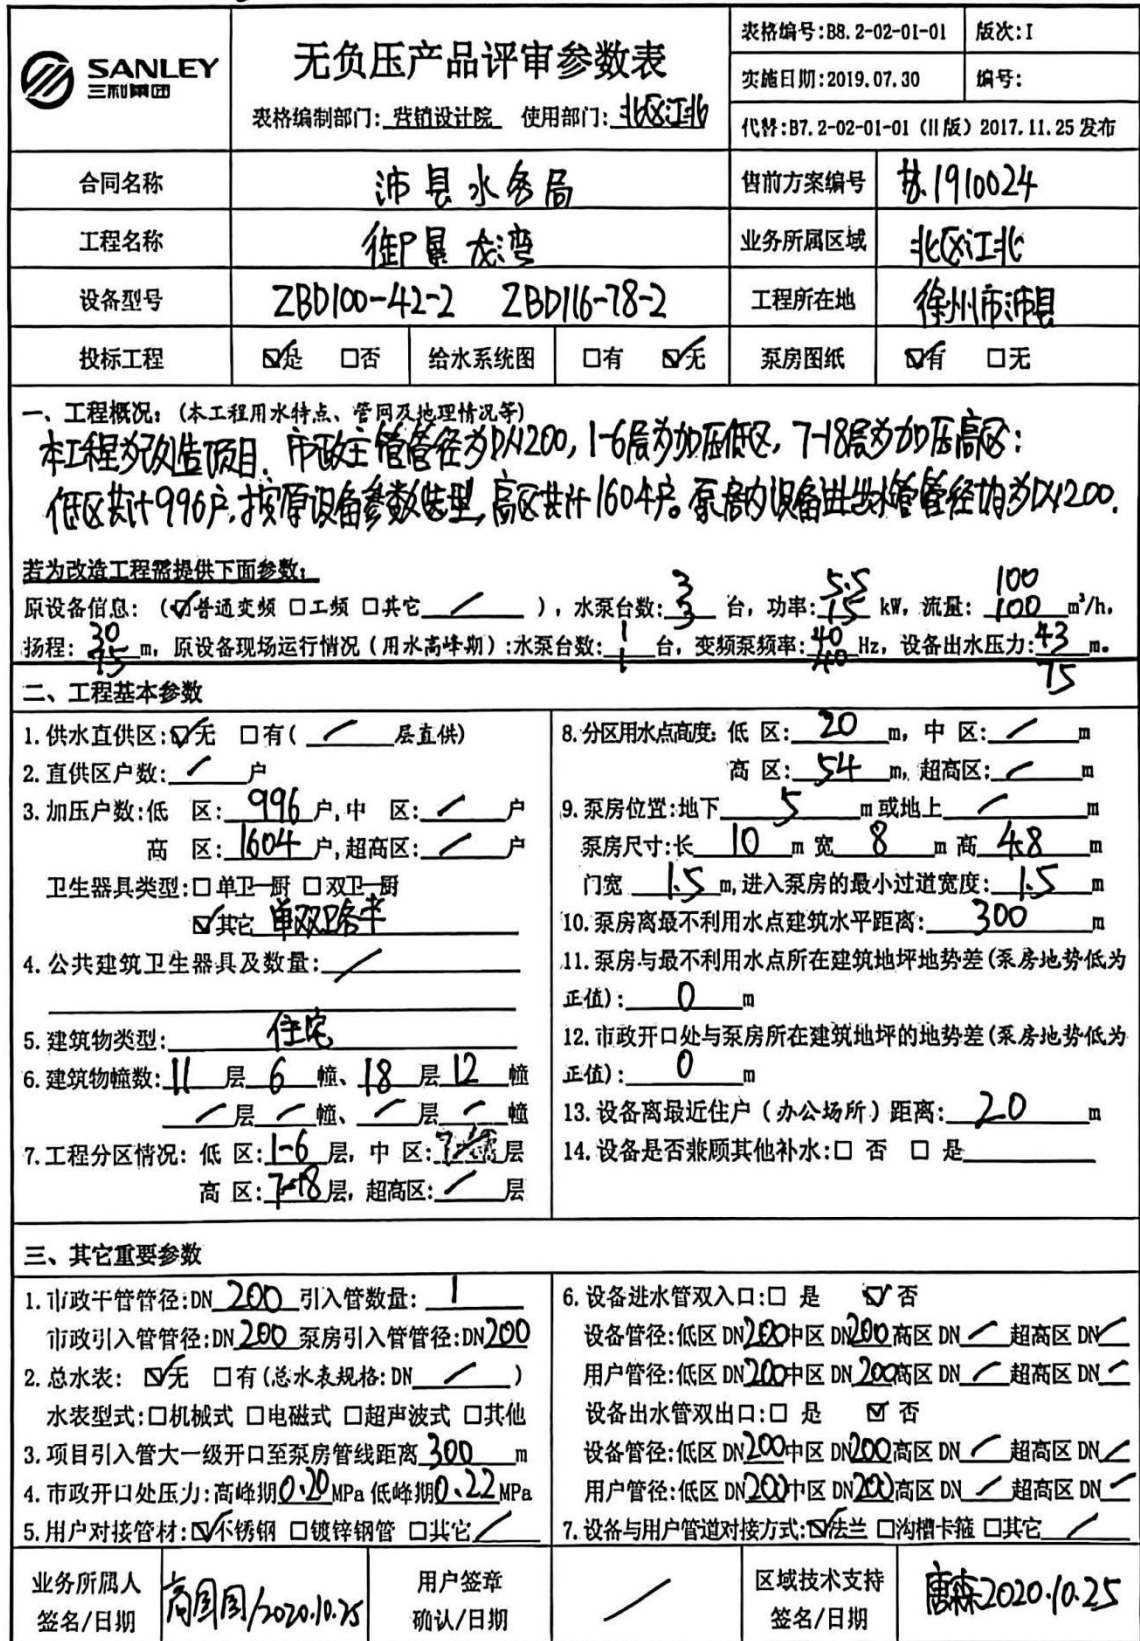 SANLEY
三利集团
无负压产品评审参数表
表格编制部门: 营销设计院 使用部门: 北区江北
表格编号:B8.2-02-01-01 版次:I
实施日期:2019.07.30 编号:
代替:B7.2-02-01-01 (II版) 2017.11.25 发布
合同名称 沛县水务局 售前方案编号 苏1910024
工程名称 御景龙湾 业务所属区域 北区江北
设备型号 ZBD100-42-2 ZBD116-78-2 工程所在地 徐州市沛县
投标工程 ☑是 □否 给水系统图 □有 ☑无 泵房图纸 ☑有 □无
一、工程概况: (本工程用水特点、管网及地理情况等)
本工程为改造项目. 市政主管管径为DN200, 1-6层为加压低区, 7-18层为加压高区;
低区共计996户, 按原设备参数选型, 高区共计1604户。泵房内设备进出水管管径均为DN200.
若为改造工程需提供下面参数:
原设备信息: (☑普通变频 □工频 □其它 / ), 水泵台数: 3 3 台, 功率: 5.5 15 kW, 流量: 100 100 m³/h,
扬程: 30 75 m, 原设备现场运行情况 (用水高峰期) :水泵台数: 1 1 台, 变频泵频率: 40 40 Hz, 设备出水压力: 43 75 m。
二、工程基本参数
1. 供水直供区: ☑无 □有( / 层直供)
2. 直供区户数: / 户
3. 加压户数: 低 区: 996 户, 中 区: / 户
高 区: 1604 户, 超高区: / 户
卫生器具类型: □单卫一厨 □双卫一厨
☑其它 单双卫各半
4. 公共建筑卫生器具及数量: /
5. 建筑物类型: 住宅
6. 建筑物幢数: 11 层 6 幢、18 层 12 幢
/ 层 / 幢、/ 层 / 幢
7. 工程分区情况: 低 区: 1-6 层, 中 区: 层
高 区: 7-18 层, 超高区: / 层
8. 分区用水点高度: 低 区: 20 m, 中 区: / m
高 区: 54 m, 超高区: / m
9. 泵房位置:地下 5 m 或地上 / m
泵房尺寸:长 10 m 宽 8 m 高 4.8 m
门宽 1.5 m, 进入泵房的最小过道宽度: 1.5 m
10. 泵房离最不利用水点建筑水平距离: 300 m
11. 泵房与最不利用水点所在建筑地坪地势差(泵房地势低为
正值): 0 m
12. 市政开口处与泵房所在建筑地坪的地势差(泵房地势低为
正值): 0 m
13. 设备离最近住户 (办公场所) 距离: 20 m
14. 设备是否兼顾其他补水: □ 否 □ 是
三、其它重要参数
1. 市政干管管径:DN 200 引入管数量: 1
市政引入管管径:DN 200 泵房引入管管径:DN 200
2. 总水表: ☑无 □有(总水表规格:DN / )
水表型式: □机械式 □电磁式 □超声波式 □其他
3. 项目引入管大一级开口至泵房管线距离 300 m
4. 市政开口处压力: 高峰期 0.20 MPa 低峰期 0.22 MPa
5. 用户对接管材: ☑不锈钢 □镀锌钢管 □其它 /
6. 设备进水管双入口: □ 是 ☑ 否
设备管径: 低区 DN 200 中区 DN 200 高区 DN / 超高区 DN /
用户管径: 低区 DN 200 中区 DN 200 高区 DN / 超高区 DN /
设备出水管双出口: □ 是 ☑ 否
设备管径: 低区 DN 200 中区 DN 200 高区 DN / 超高区 DN /
用户管径: 低区 DN 200 中区 DN 200 高区 DN / 超高区 DN /
7. 设备与用户管道对接方式: ☑法兰 □沟槽卡箍 □其它 /
业务所属人 签名/日期 /2020.10.25 用户签章 确认/日期 / 区域技术支持 签名/日期 唐森2020.10.25